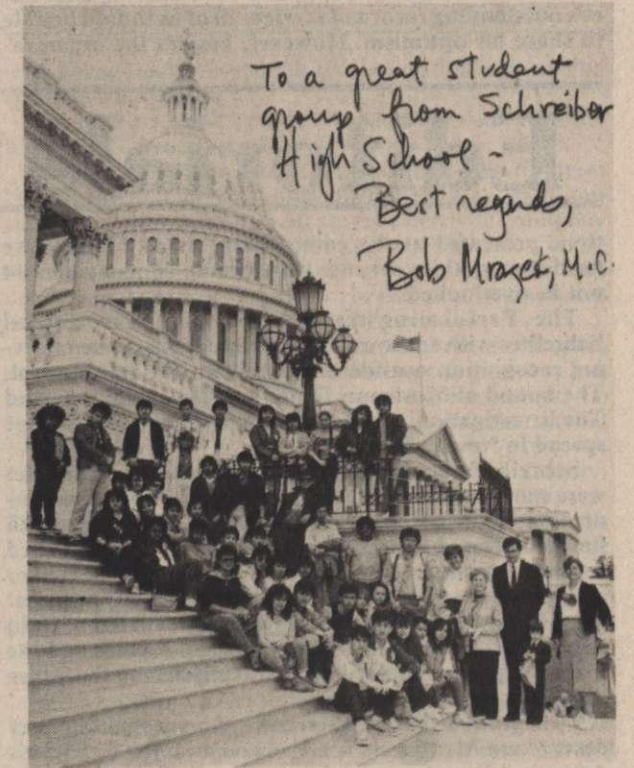 To a great student
group from Schreiber
High School -
Best regards,
Bob Mrazek, M.C.